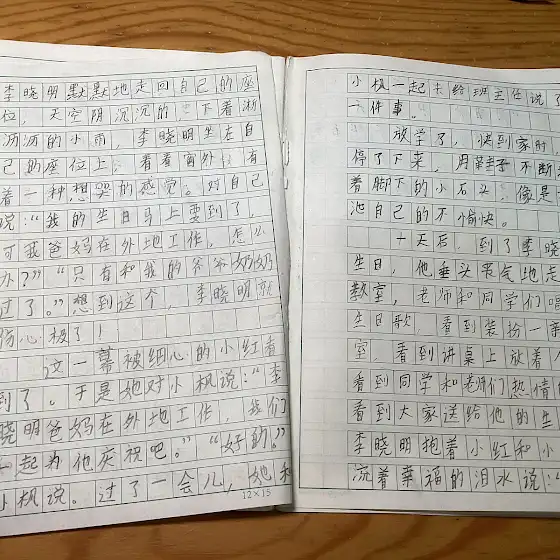 李晓明默默地走回自己的座
位，天空阴沉沉的，下着淅
沥沥的小雨，李晓明坐在自
己的座位上，看着窗外，有
着一种想哭的感觉。对自己
说：“我的生日马上要到了，
可我爸妈在外地工作，怎么
办？”“只有和我的爷爷奶奶
过了。”想到这个，李晓明就
伤心极了！
这一幕被细心的小红看
到了。于是她对小枫说：“李
晓明爸妈在外地工作，我们
一起为他庆祝吧。”“好的。”
小枫说。过了一会儿，她和
12×15
小枫一起去给班主任说了
一件事。
放学了，快到家时，
停了下来，用 不断
着脚下的小石头，像是
泄自己的不愉快。
十天后，到了李晓
生日，他垂头丧气地走
教室，老师和同学们唱
生日歌，看到装扮一新
室，看到讲桌上放着
看到同学和老师们热情
看到大家送给他的生
李晓明抱着小红和小
流着幸福的泪水说：“